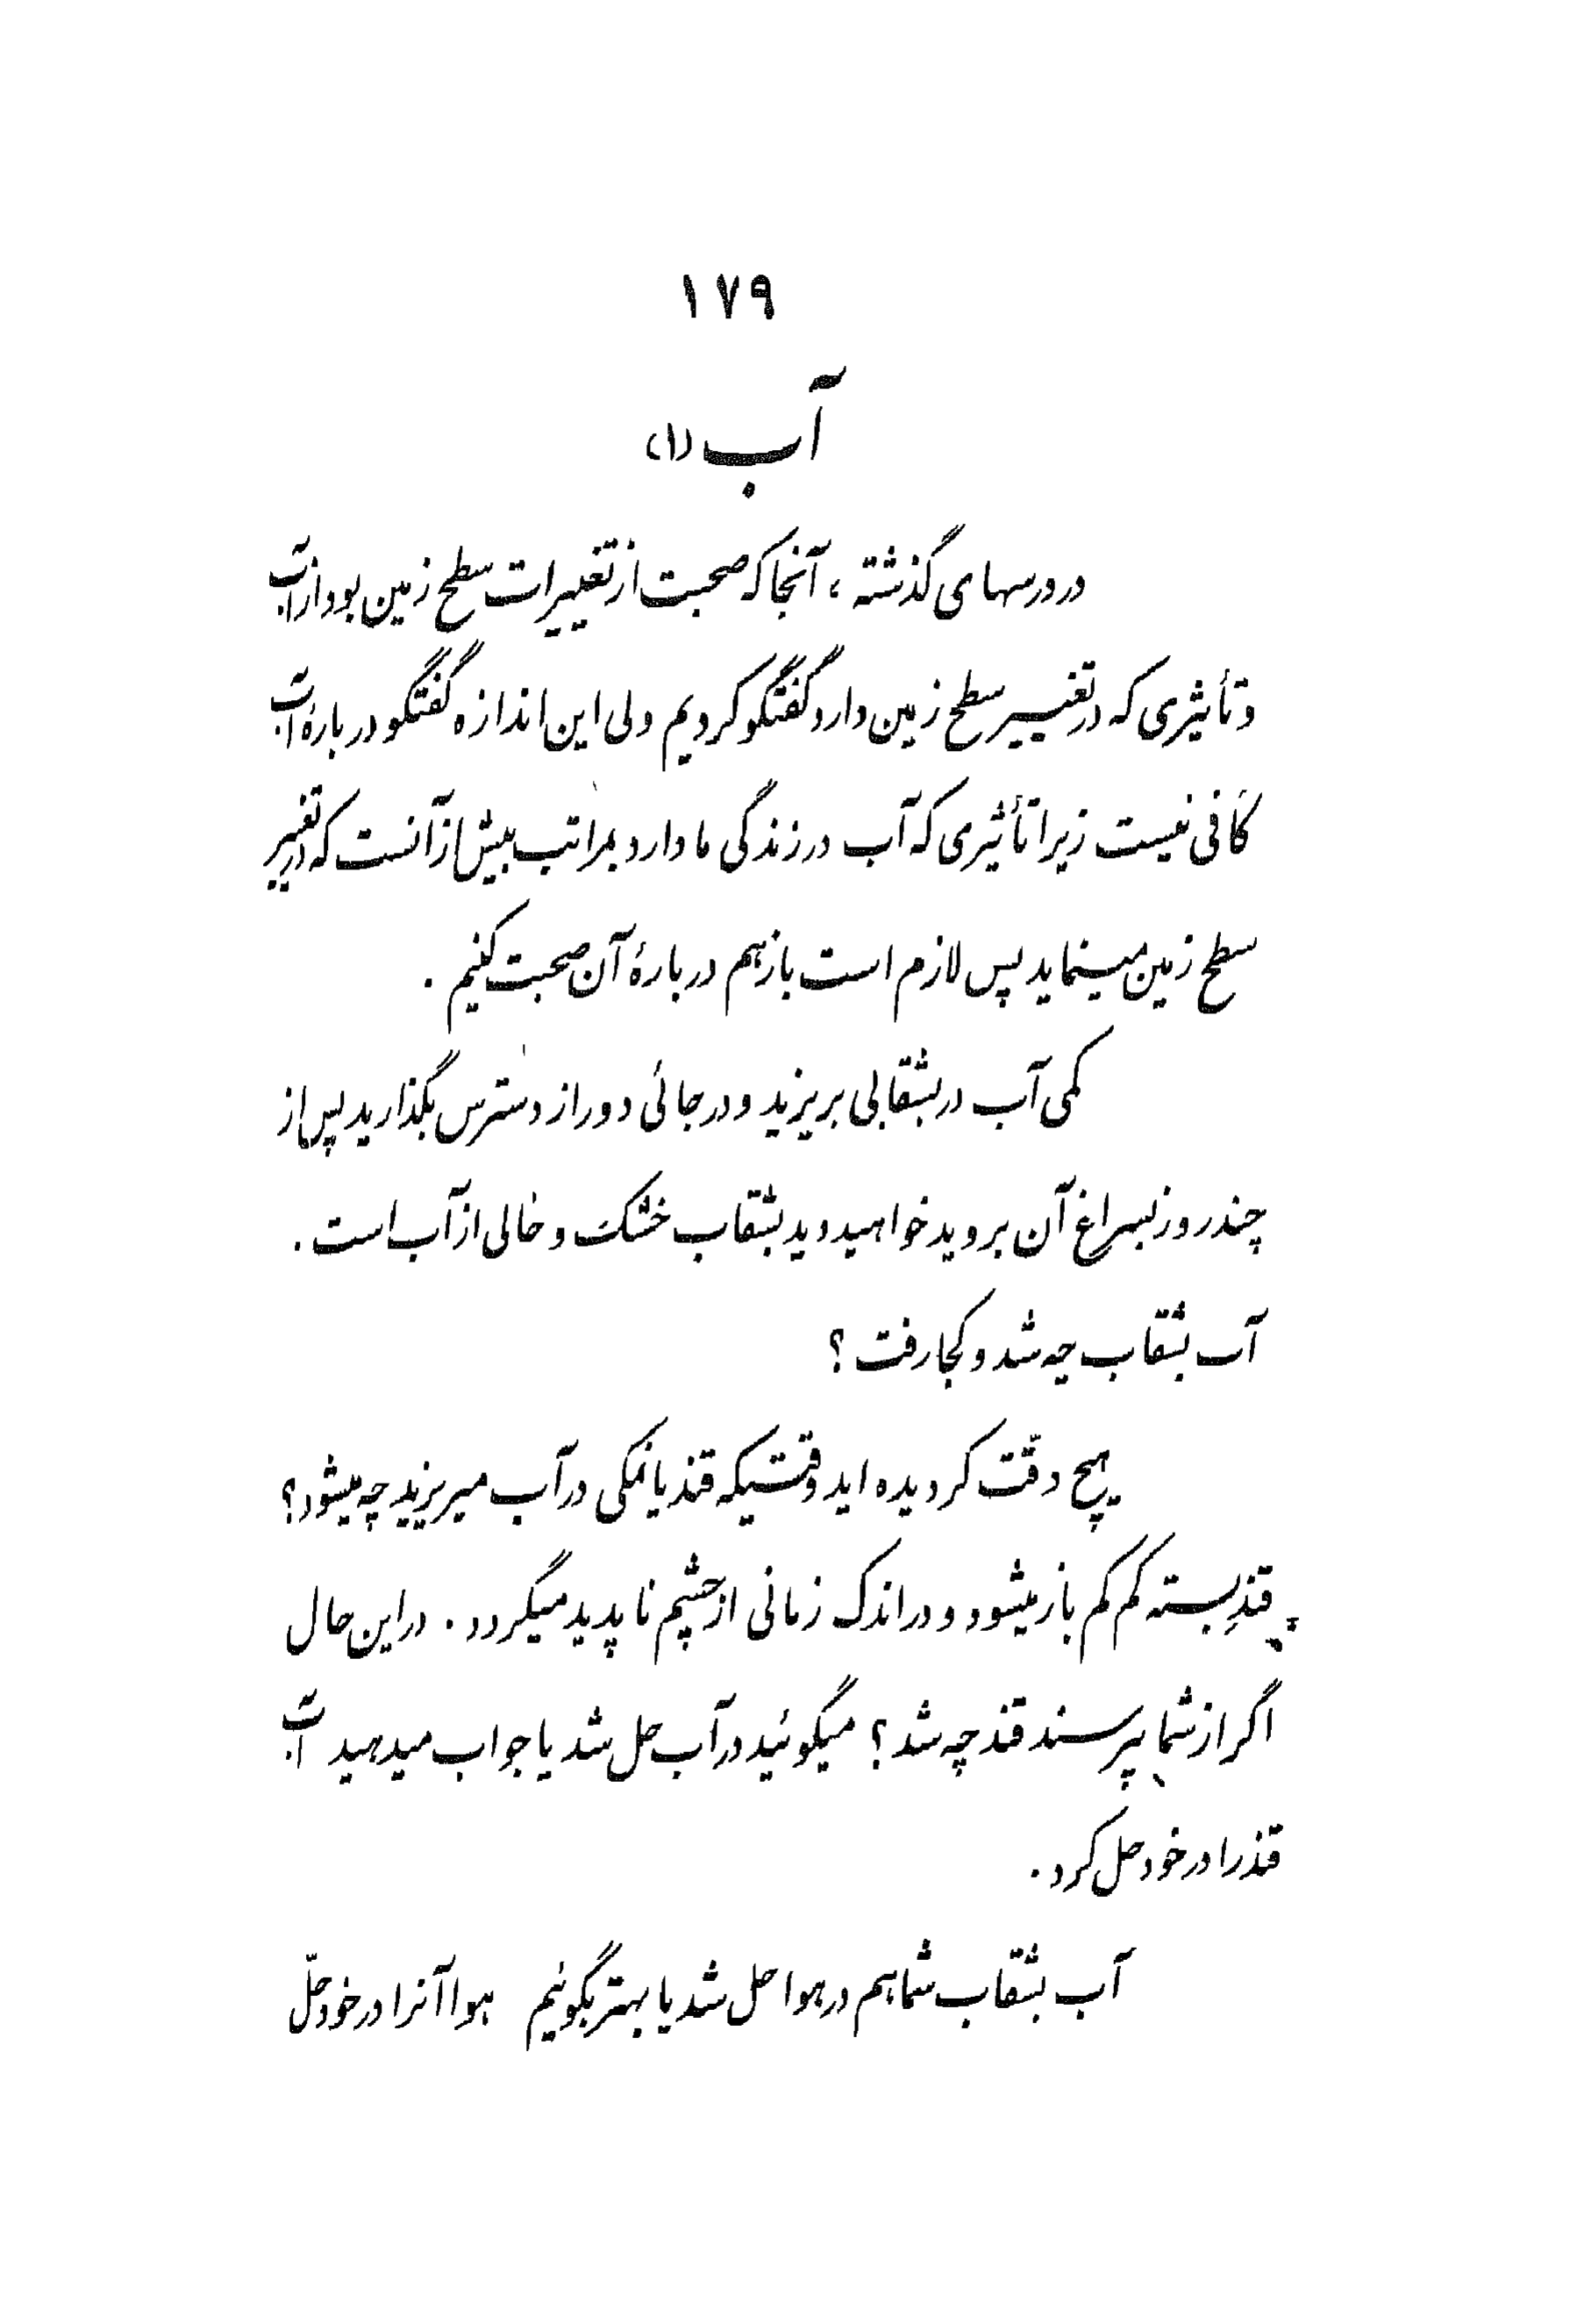 ۱۷۹
آب (۱)
در درسهای گذشته ، آنجا که صحبت از تغییرات سطح زمین بود از آب
و تأثیری که در تغییر سطح زمین دارد گفتگو کردیم ولی این اندازه گفتگو در بارهٔ آب
کافی نیست زیرا تأثیری که آب در زندگی ما دارد بمراتب بیش از آنست که در تغییر
سطح زمین مینماید پس لازم است باز هم در بارهٔ آن صحبت کنیم .
کمی آب در بشقابی بریزید و در جائی دور از دسترس بگذارید پس از
چند روز بسراغ آن بروید خواهید دید بشقاب خشک و خالی از آب است .
آب بشقاب چه شد و کجا رفت ؟
هیچ دقّت کرده اید وقتیکه قند یا نمکی در آب میریزید چه میشود ؟
قندِ بسته کم کم باز میشود و در اندک زمانی از چشم ناپدید میگردد . در این حال
اگر از شما بپرسند قند چه شد ؟ میگوئید در آب حل شد یا جواب میدهید آب
قند را در خود حل کرد .
آب بشقاب شما هم در هوا حل شد یا بهتر بگوئیم هوا آنرا در خود حلّ